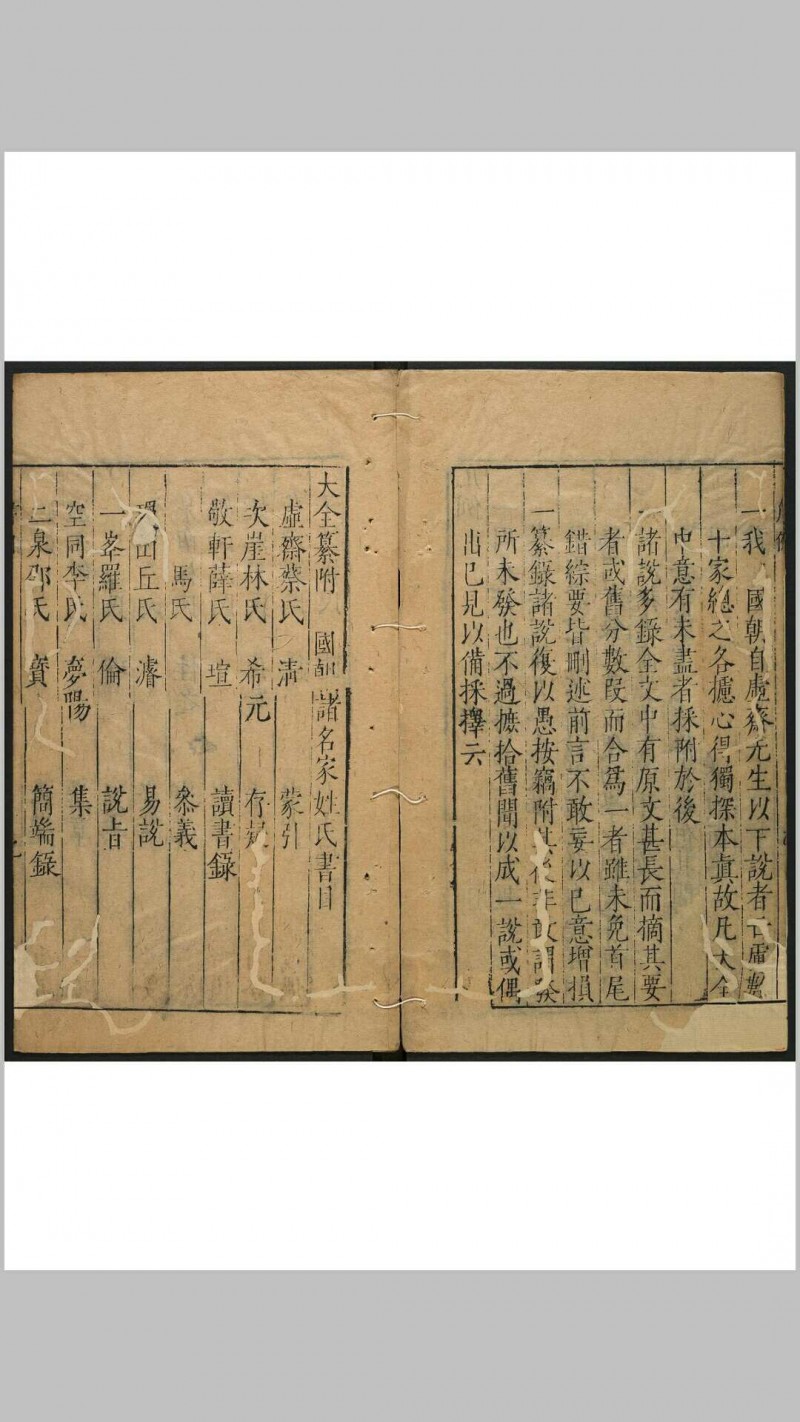 一我 國朝自虛齋先生以下說者亡慮數
十家總之各攄心得獨探本真故凡大全
中意有未盡者採附於後
諸說多錄全文中有原文甚長而摘其要
者或舊分數段而合為一者雖未免首尾
錯綜要皆刪述前言不敢妄以己意增損
一纂錄諸說復以愚按竊附其後非敢謂發
所未發也不過摭拾舊聞以成一說或偶
出己見以備採擇云
大全纂附 國朝諸名家姓氏書目
虛齋蔡氏 清 蒙引
次崖林氏 希元 存疑
敬軒薛氏 瑄 讀書錄
馬氏 叅義
丘氏 濬 易說
一峯羅氏 倫 說旨
空同李氏 夢陽 集
二泉邵氏 寶 簡端錄